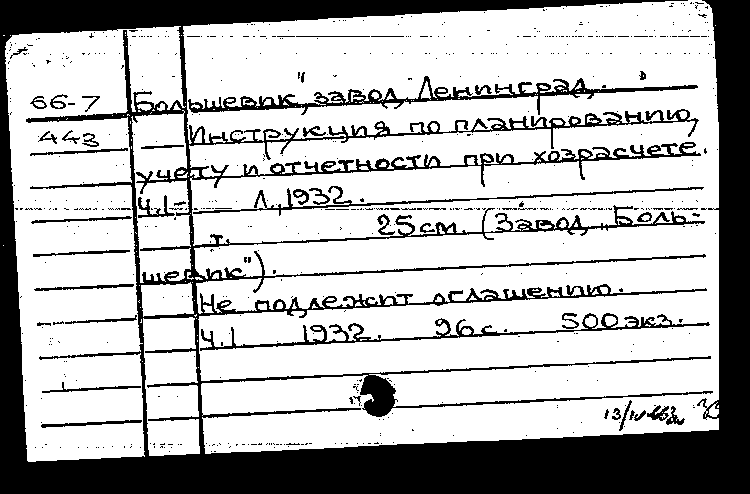 66-7 Большевик", завод, Ленинград.
443 Инструкция по планированию,
учету и отчетности при хозрасчете.
Ч.1- Л., 1932.
т. 25 см. (Завод „Боль-
шевик").
Не подлежит оглашению.
Ч.1 1932. 96 с. 500 экз.
13/IV